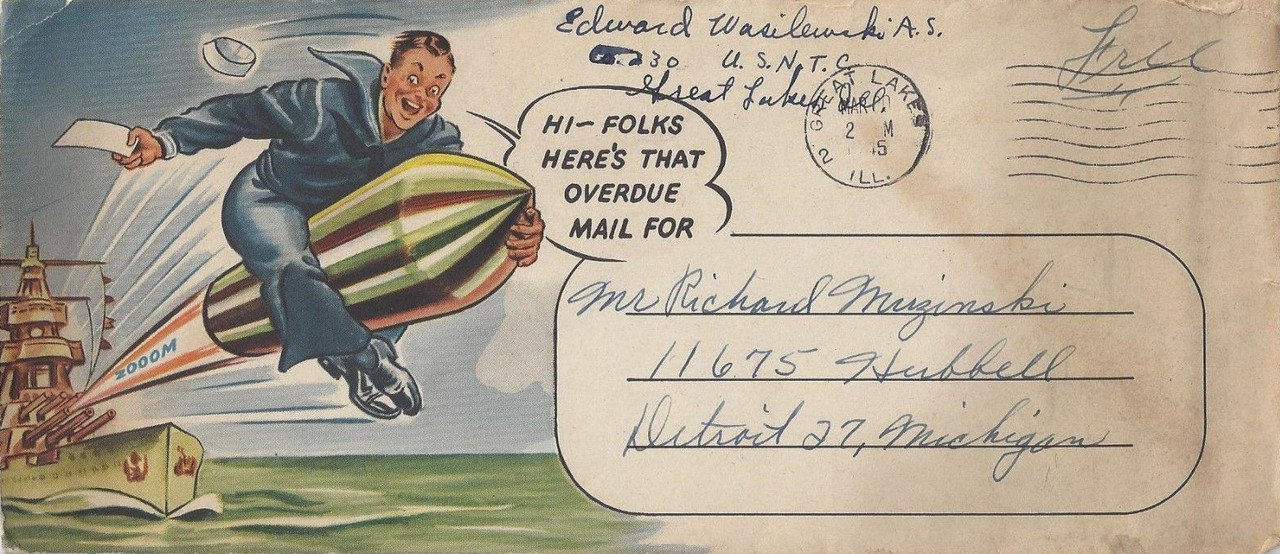 Edward Wasilewski A.S.
230 U.S.N.T.C.
Great Lakes, Ill.
Free
GREAT LAKES
MAR
2 M
45
2
ILL.
HI- FOLKS
HERE'S THAT
OVERDUE
MAIL FOR
Mr Richard Muzinski
11675 Hubbell
Detroit 27, Michigan
ZOOOM